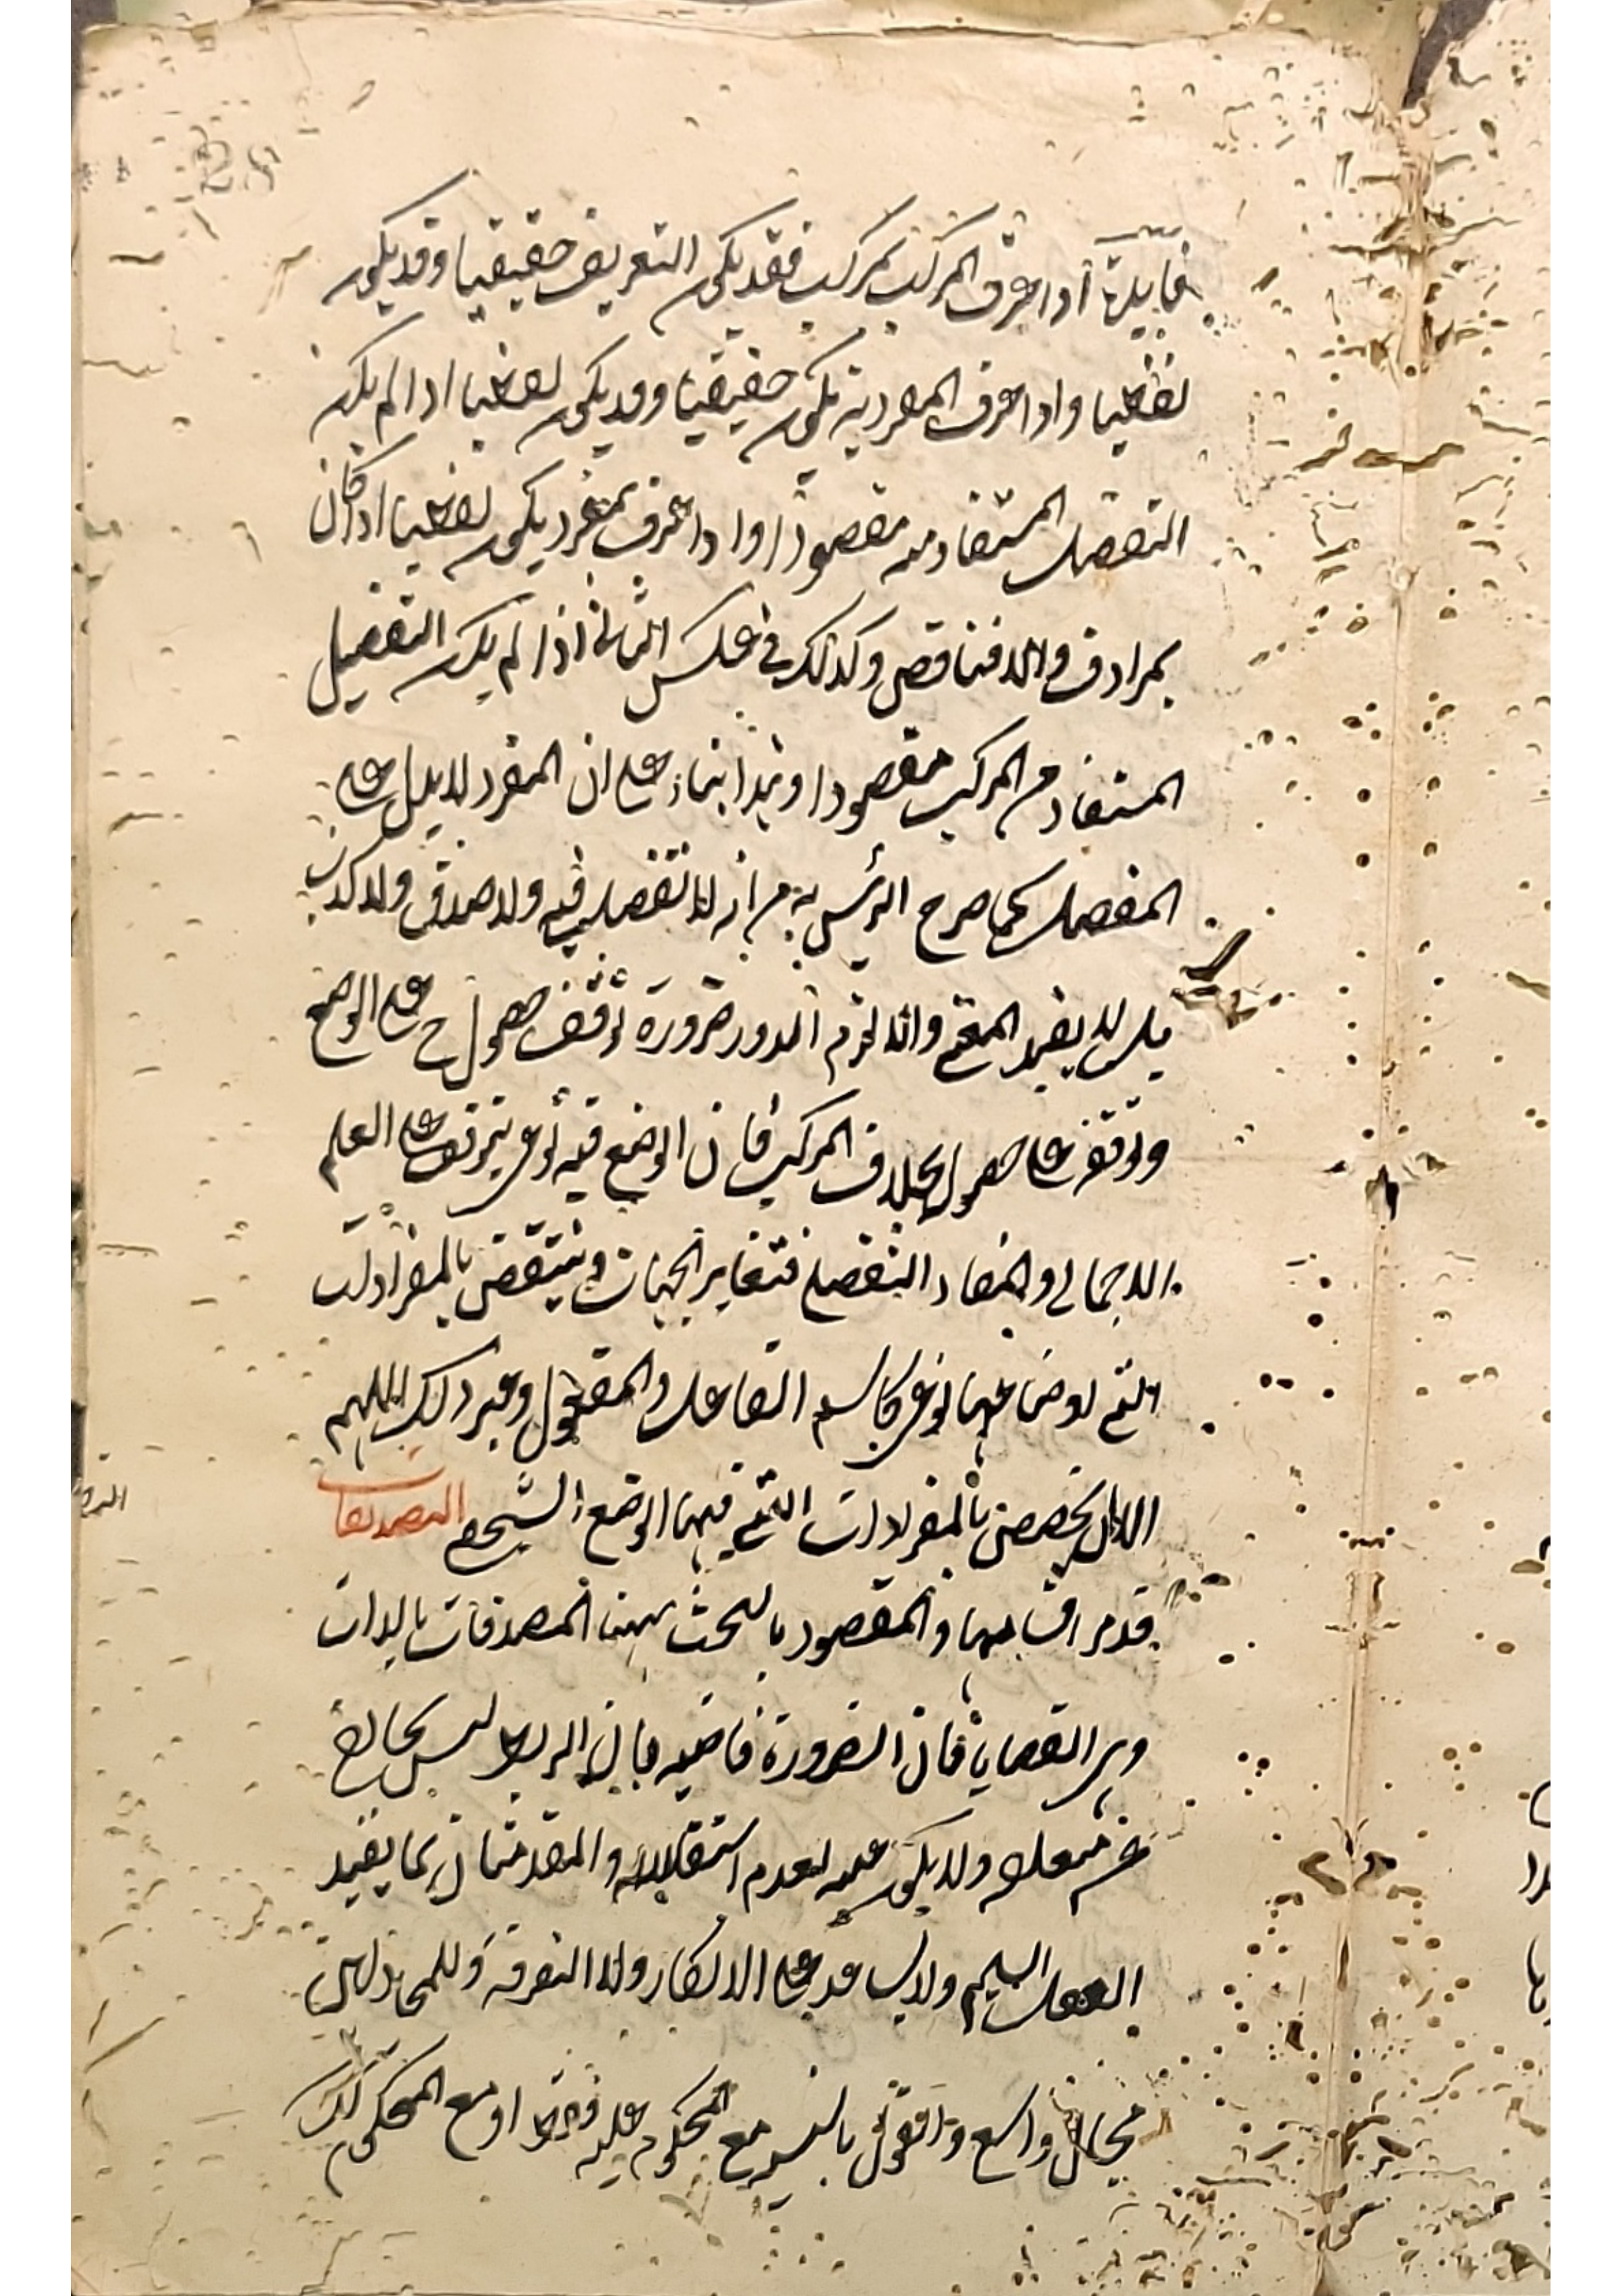 فايدة اذا عرف المركب بمركب فقد يكون التعريف حقيقيا وقد يكون
لفظيا واذا عرف المفرد به يكون حقيقيا وقد يكون لفظيا اذا لم يكن
التفصيل المستفاد منه مقصودا واذا عرف بمفرد يكون لفظيا اذا كان
بمرادف والا فناقص وكذلك في عكس الثاني اذا لم يكن التفصيل
المستفاد من المركب مقصودا وهذا بناء على ان المفرد لا يدل على
المفصل كما صرح الرئيس به من انه لا تفصيل فيه ولا صدق ولا كذب
بل لا يفيد المعنى والا لزم الدور ضرورة توقف حصول ح على الوضع
وتوقفه على حصول بخلاف المركب فان الوضع فيه نوعي يتوقف على العلم
الاجمالي والمفاد التفصيلي فتغاير الجهات وينتقض بالمفردات
التي اوضاعها نوعي كاسم الفاعل والمفعول وغير ذلك اللهم
الا ان يخصص بالمفردات التي فيها الوضع الشخصي التصديقات
قد مر اقسامها والمقصود بالبحث ههنا المصدقات بالذات
وهي القضايا فان الضرورة قاضية بان الربط ليس بحاك
عن متعلق ولا يكون علمه لعدم استقلاله والمقدمتان مما يفيد
العقل السليم ولا يساعد على الانكار ولا التفرقة وللمجادلين
مجال واسع واقول بالنسبة مع المحكوم عليه فقط او مع المحكوم